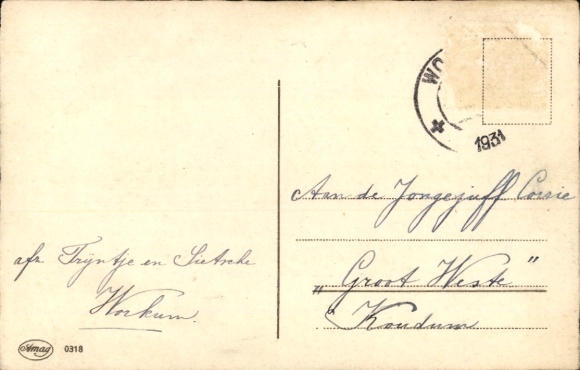 WO
1931
Aan de Jongejuff Corrie
„Groot Weste"
Koudum
afz Trÿntje en Sietsche
Workum.
Amag 0318